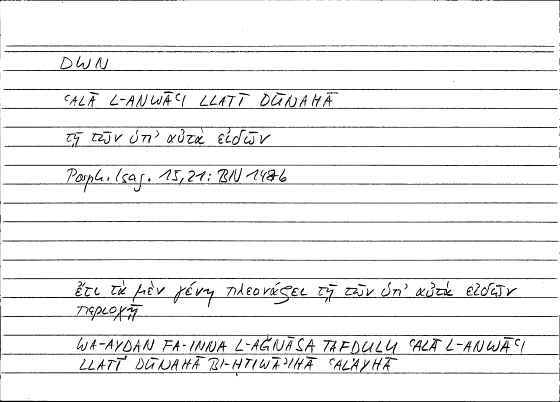 DWN
ʿALĀ L-ANWĀʿI LLATĪ DŪNAHĀ
τῇ τῶν ὑπ' αὐτὰ εἰδῶν
Porph. Isag. 15,21: BN 148b
ἔτι τὰ μὲν γένη πλεονάζει τῇ τῶν ὑπ' αὐτὰ εἰδῶν
περιοχῇ
WA-AYḌAN FA-INNA L-AǦNĀSA TAFḌULU ʿALĀ L-ANWĀʿI
LLATĪ DŪNAHĀ BI-ḤTIWĀʾIHĀ ʿALAYHĀ